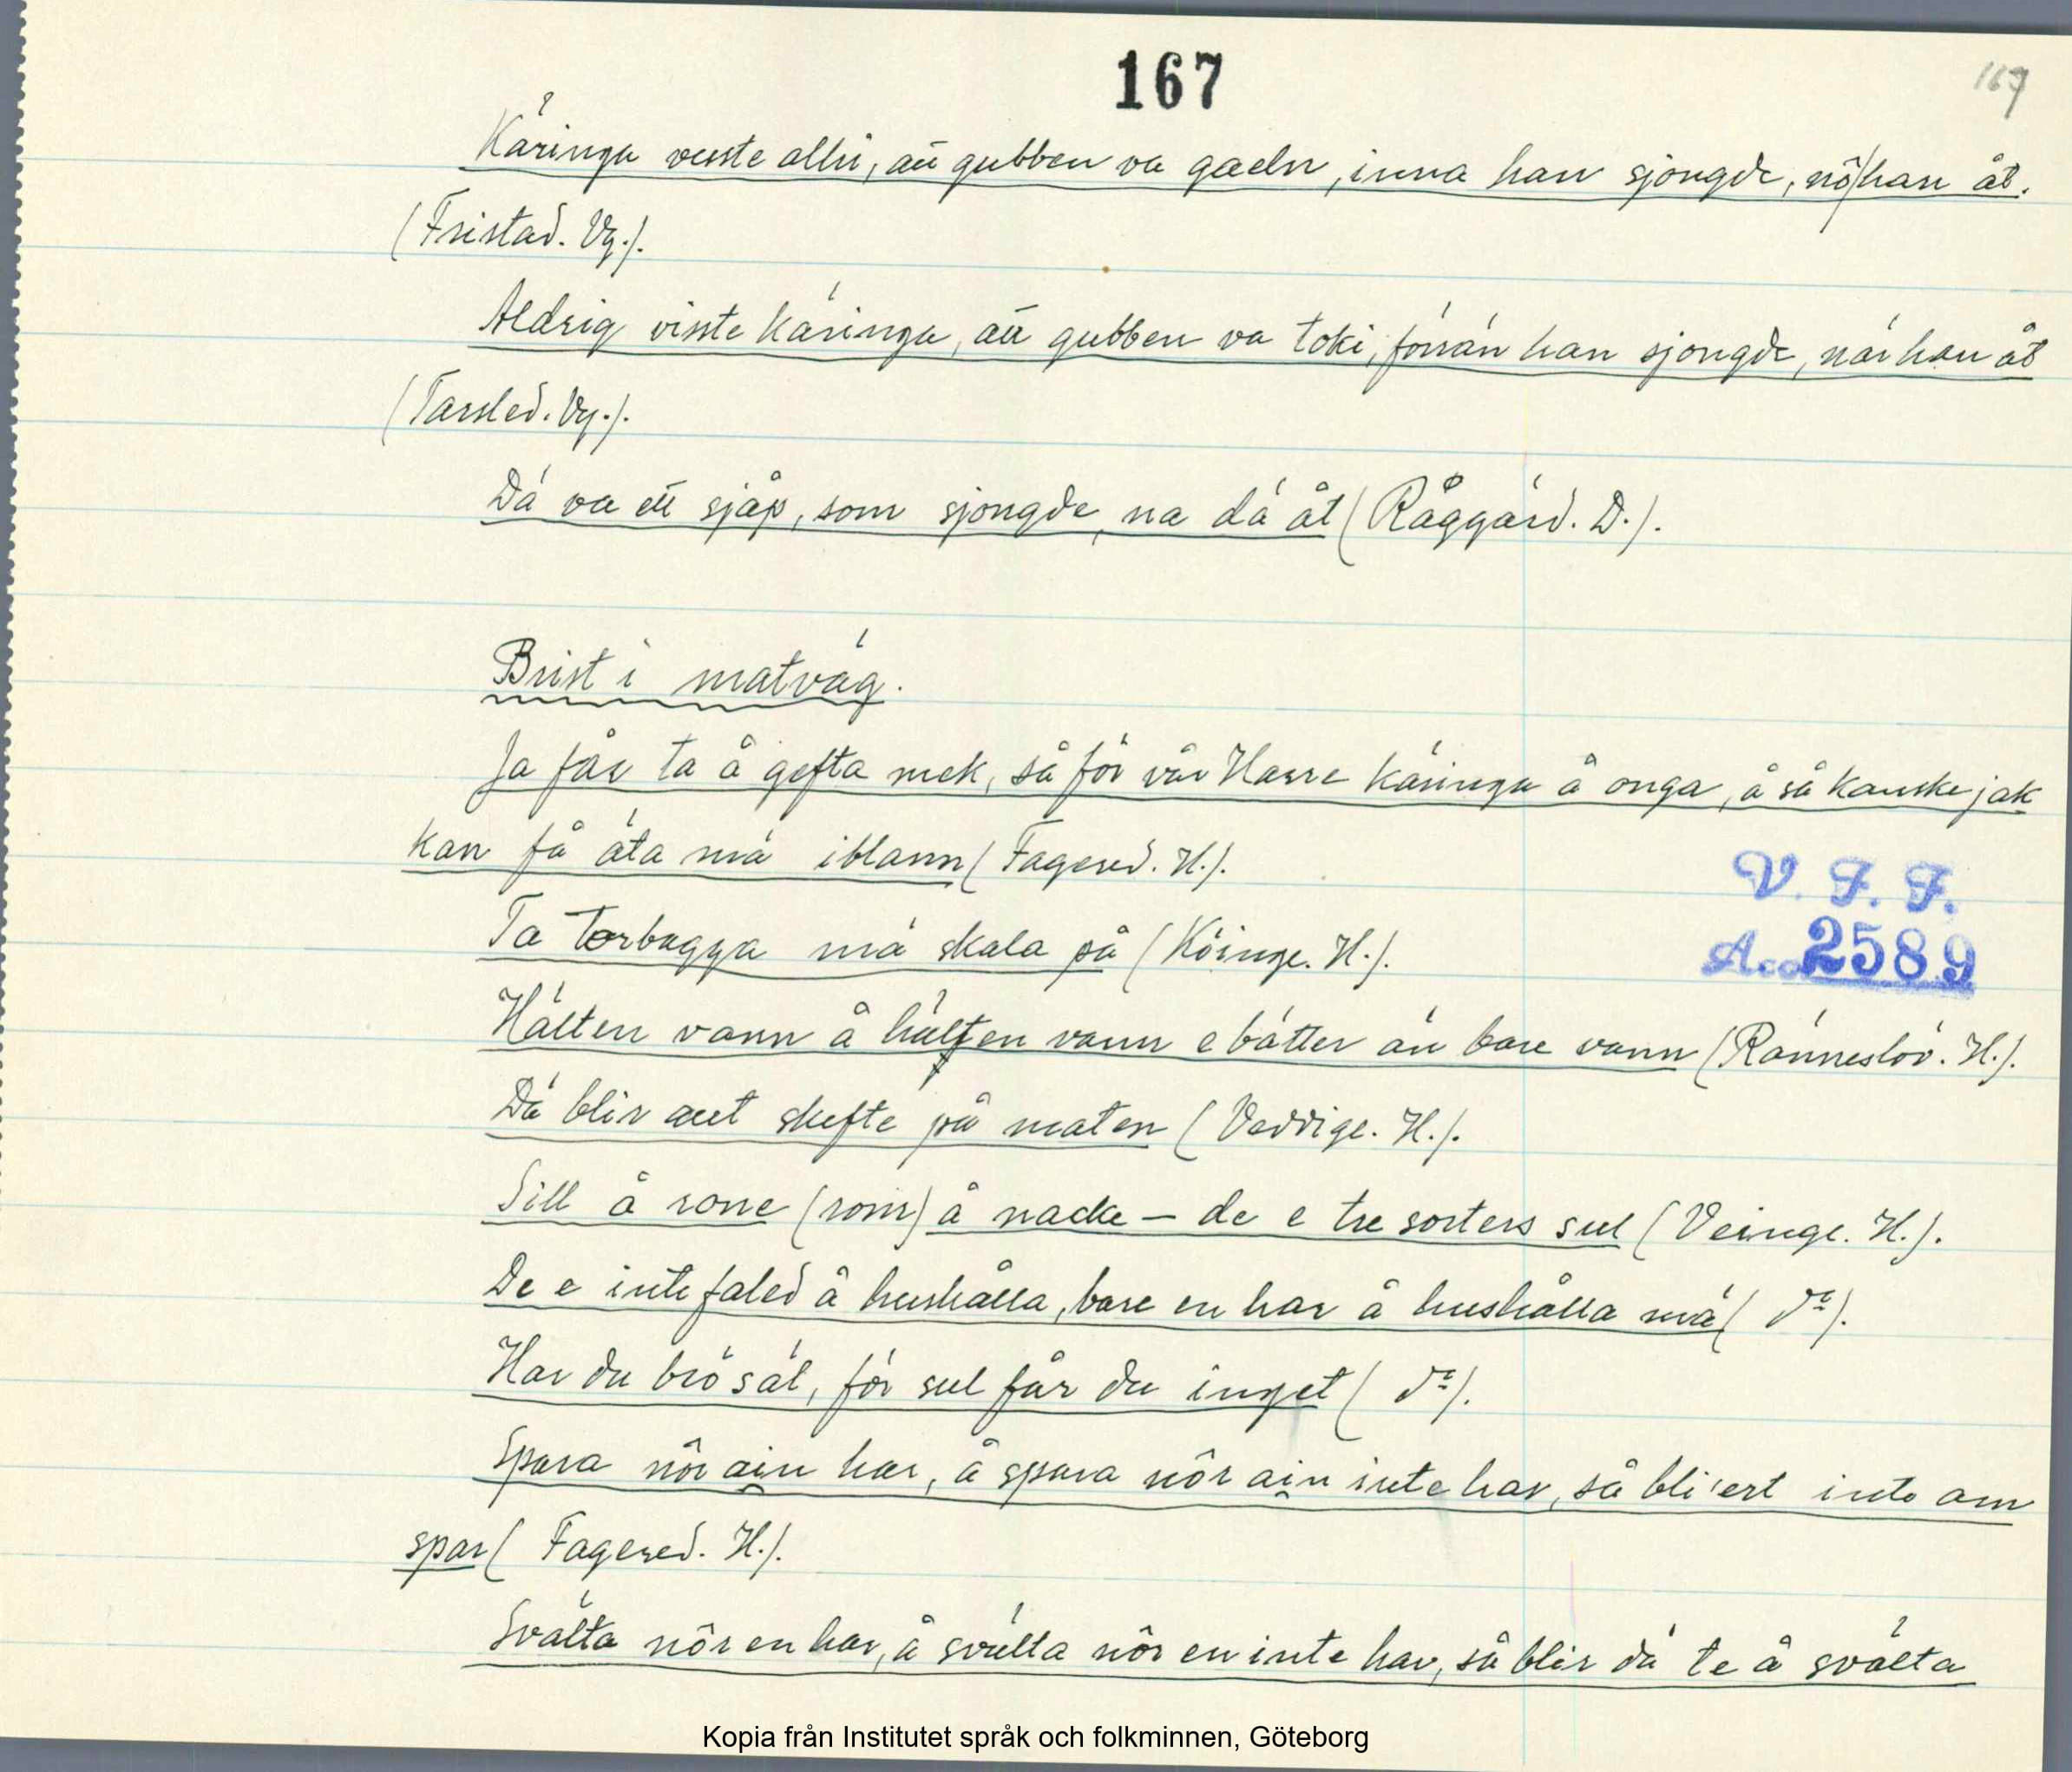 167
167
Käringa visste alli, att gubben va gaeln, inna han sjongde, nö han åt.
(Fristad. Vg.).
Aldrig visste käringa, att gubben va toki, förrän han sjongde, när han åt
(Tarsled. Vg.).
Dä va ett sjåp, som sjongde, na dä åt (Råggärd. D.).
Brist i matväg.
Ja får ta å gefta mek, så för vår Harre käringa å onga, å så kanske jak
kan få äta mä iblann (Fagered. H.).
Ta torbagga mä skala på (Köinge. H.).
Hälten vann å hälften vann e bätter än bare vann (Ränneslöv. H.).
Dä blir aut skefte på maten (Veddige. H.).
Sill å rone (rom) å nacke – de e tre sorters sul (Veinge. H.).
De e inte faled å hushålla, bare en har å hushålla mä (do).
Har du brö säl, för sul får du inget (do).
Spara nôr ain har, å spara nôr ain inte har, så bli'ert inte om
spar (Fagered. H.).
Svälta nôr en har, å svälta nôr en inte har, så blir dä te å svälta
V. F. F.
Acc. 2589
Kopia från Institutet språk och folkminnen, Göteborg